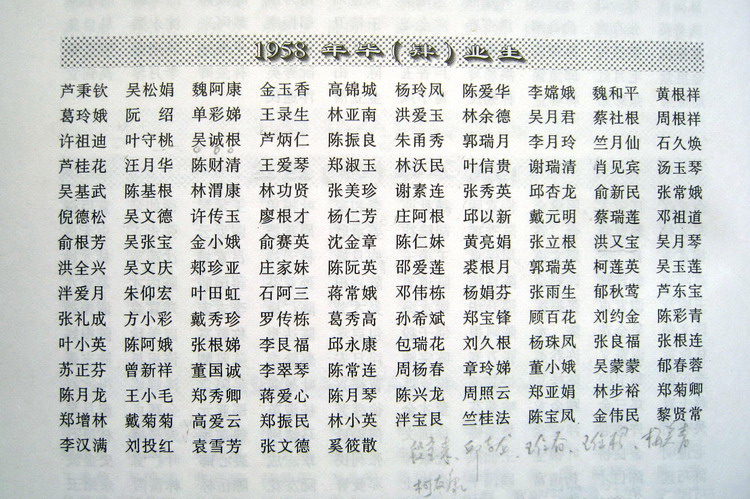 1958年毕(肄)业生
芦秉钦 吴松娟 魏阿康 金玉香 高锦城 杨玲凤 陈爱华 李嫦娥 魏和平 黄根祥
葛玲娥 阮绍 单彩娣 王录生 林亚南 洪爱玉 林余德 吴月君 蔡社根 周根祥
许祖迪 叶守桃 吴诚根 芦炳仁 陈振良 朱甬秀 郭瑞月 李月玲 竺月仙 石久焕
芦桂花 汪月华 陈财清 王爱琴 郑淑玉 林沃民 叶信贵 谢瑞清 肖见宾 汤玉琴
吴基武 陈基根 林渭康 林功贤 张美珍 谢素连 张秀英 邱杏龙 俞新民 张常娥
倪德松 吴文德 许传玉 廖根才 杨仁芳 庄阿根 邱以新 戴元明 蔡瑞莲 邓祖道
俞根芳 吴张宝 金小娥 俞赛英 沈金章 陈仁妹 黄亮娟 张立根 洪又宝 吴月琴
洪全兴 吴文庆 郏珍亚 庄家妹 陈阮英 邵爱莲 裘根月 郭瑞英 柯莲英 吴玉莲
泮爱月 朱仰宏 叶田虹 石阿三 蒋常娥 邓伟栋 杨娟芬 张雨生 郁秋莺 芦东宝
张礼成 方小彩 戴秀珍 罗传栋 葛秀高 孙希斌 郑宝锋 顾百花 刘约金 陈彩青
叶小英 陈阿娥 张根娣 李艮福 邱永康 包瑞花 刘久根 杨珠凤 张良福 张根连
苏正芬 曾新祥 董国诚 李翠琴 陈常连 周杨春 章玲娣 董小娥 吴蒙蒙 郁春蓉
陈月龙 王小毛 郑秀卿 蒋爱心 陈月琴 陈兴龙 周照云 郑亚娟 林步裕 郑菊卿
郑增林 戴菊菊 高爱云 郑振民 林小英 泮宝艮 竺桂法 陈宝凤 金伟民 黎贤常
李汉满 刘投红 袁雪芳 张文德 奚筱散